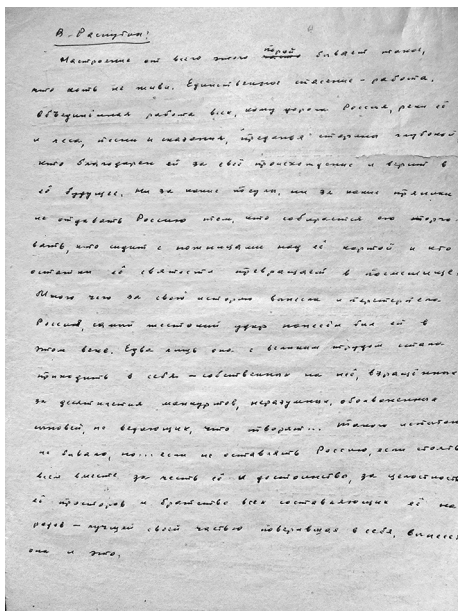 В. Распутин:
Настроение от всего этого порой бывает такое,
что хоть не живи. Единственное спасение – работа.
Объединённая работа всех, кому дорога Россия, реки её
и леса, песни и сказания, преданья старины глубокой
кто благодарен ей за своё происхождение и верит в
её будущее. Ни за какие посулы, ни за какие пряники
не отдавать Россию тем, кто собирается ею торго-
вать, кто сидит с ножницами над её картой и кто
остатки её святости превращает в посмешище.
Много чего за свою историю вынесла и перетерпела
Россия, самый жестокий удар нанесён был ей в
этом веке. Едва лишь она с великим трудом стала
приходить в себя –
собственных на неё, взращённых
за десятилетия манкуртов, неразумных, оболваненных
сыновей, не ведающих, что творят... Такого
не бывало, но... если не оставлять Россию, если стоять
всем вместе за честь её и достоинство, за целостность
её просторов и братство всех составляющих её на-
родов – лучшей своей частью поверившая в себя, вынесет
она и это.